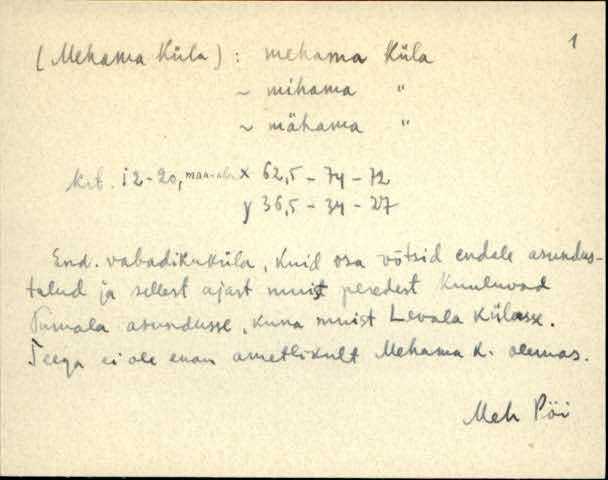 1
(Mehama Küla) : mehama küla
~ mihama "
~ mähama "
krt. i2-20, maa-ala x 62,5 - 74 - 72
y 36,5 - 34 - 27
End. vabadikuküla, kuid osa võtsid endale asundus-
talud ja sellest ajast muist peredest kuuluvad
asundusse, kuna muist Levala külasse.
Seega ei ole enam ametlikult Mehama k. olemas.
Meh Pöi